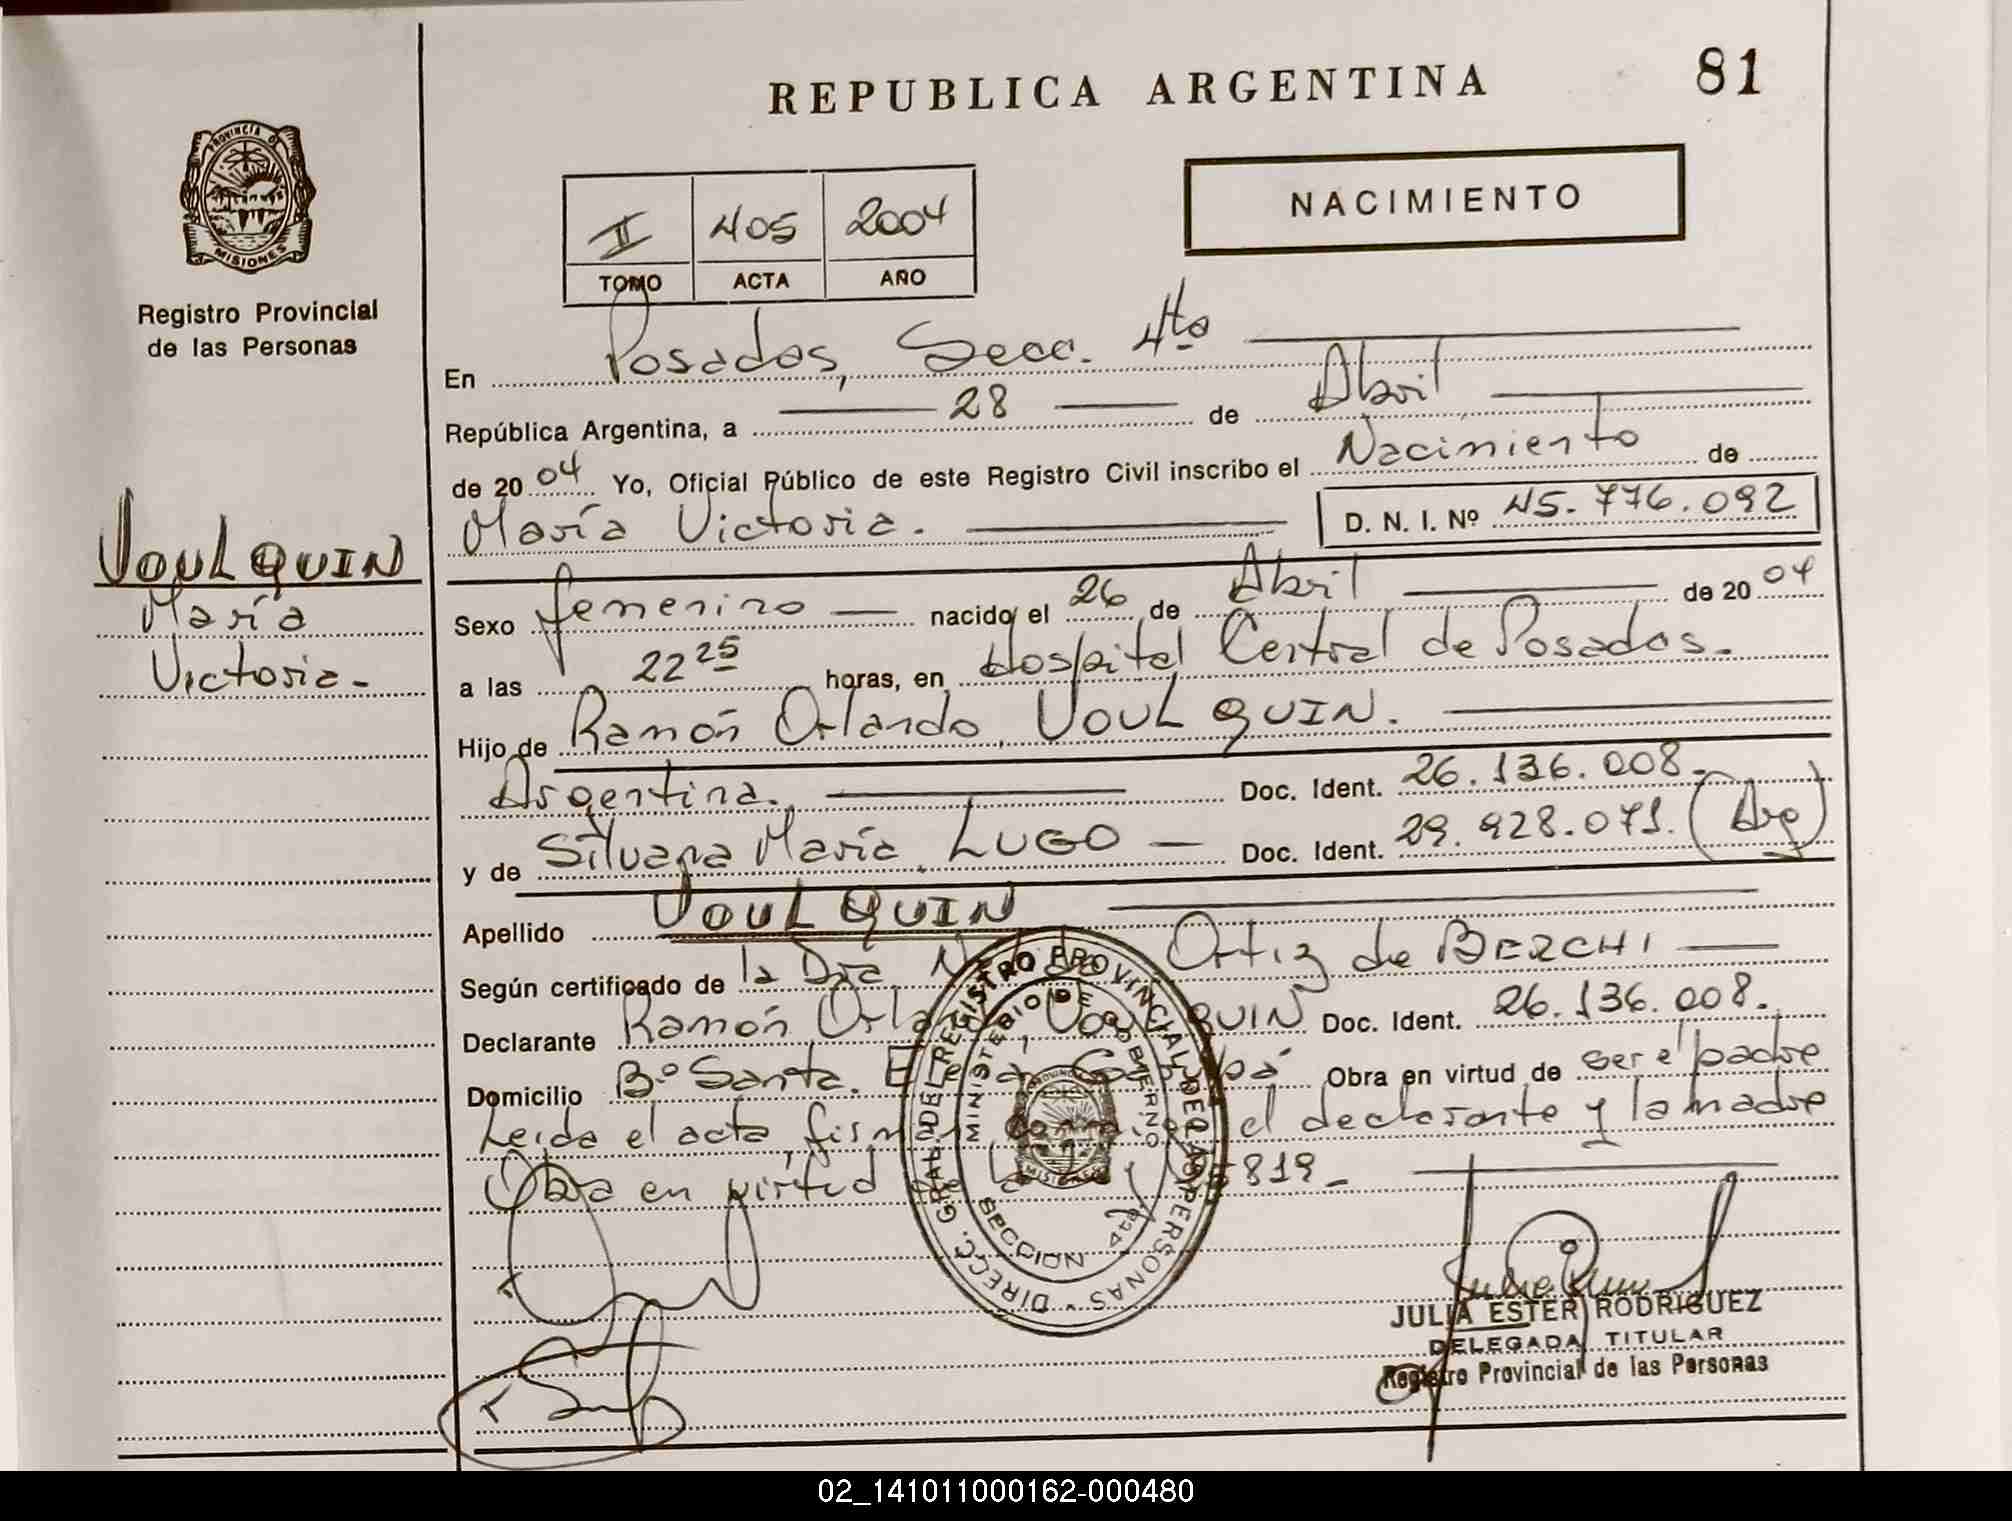 REPUBLICA ARGENTINA
81
PROVINCIA DE
MISIONES
Registro Provincial
de las Personas
II 405 2004
TOMO ACTA AÑO
NACIMIENTO
En Posadas, Secc. 4ta
República Argentina, a 28 de Abril
de 2004 Yo, Oficial Público de este Registro Civil inscribo el Nacimiento de
María Victoria. D. N. I. Nº 45.776.092
VOULQUIN
María
Victoria.-
Sexo femenino nacido el 26 de Abril de 2004
a las 22 25 horas, en Hospital Central de Posadas.
Hijo de Ramón Orlando VOULQUIN.
Argentina. Doc. Ident. 26.136.008.
y de Silvana María LUGO Doc. Ident. 29.928.071. (Arg)
Apellido VOULQUIN
Según certificado de la Dra. Ortiz de BERCHI
Declarante Ramón Orlando VOULQUIN Doc. Ident. 26.136.008.
Domicilio Bº Santa Obra en virtud de ser el padre
Leída el acta, firman el declarante y la madre
Obra en virtud 819.-
DIRECC. GRAL. DEL REGISTRO PROVINCIAL DE LAS PERSONAS
MINISTERIO DE GOBIERNO
SECCION 4ta
MISIONES
JULIA ESTER RODRIGUEZ
DELEGADA TITULAR
Registro Provincial de las Personas
02_141011000162-000480